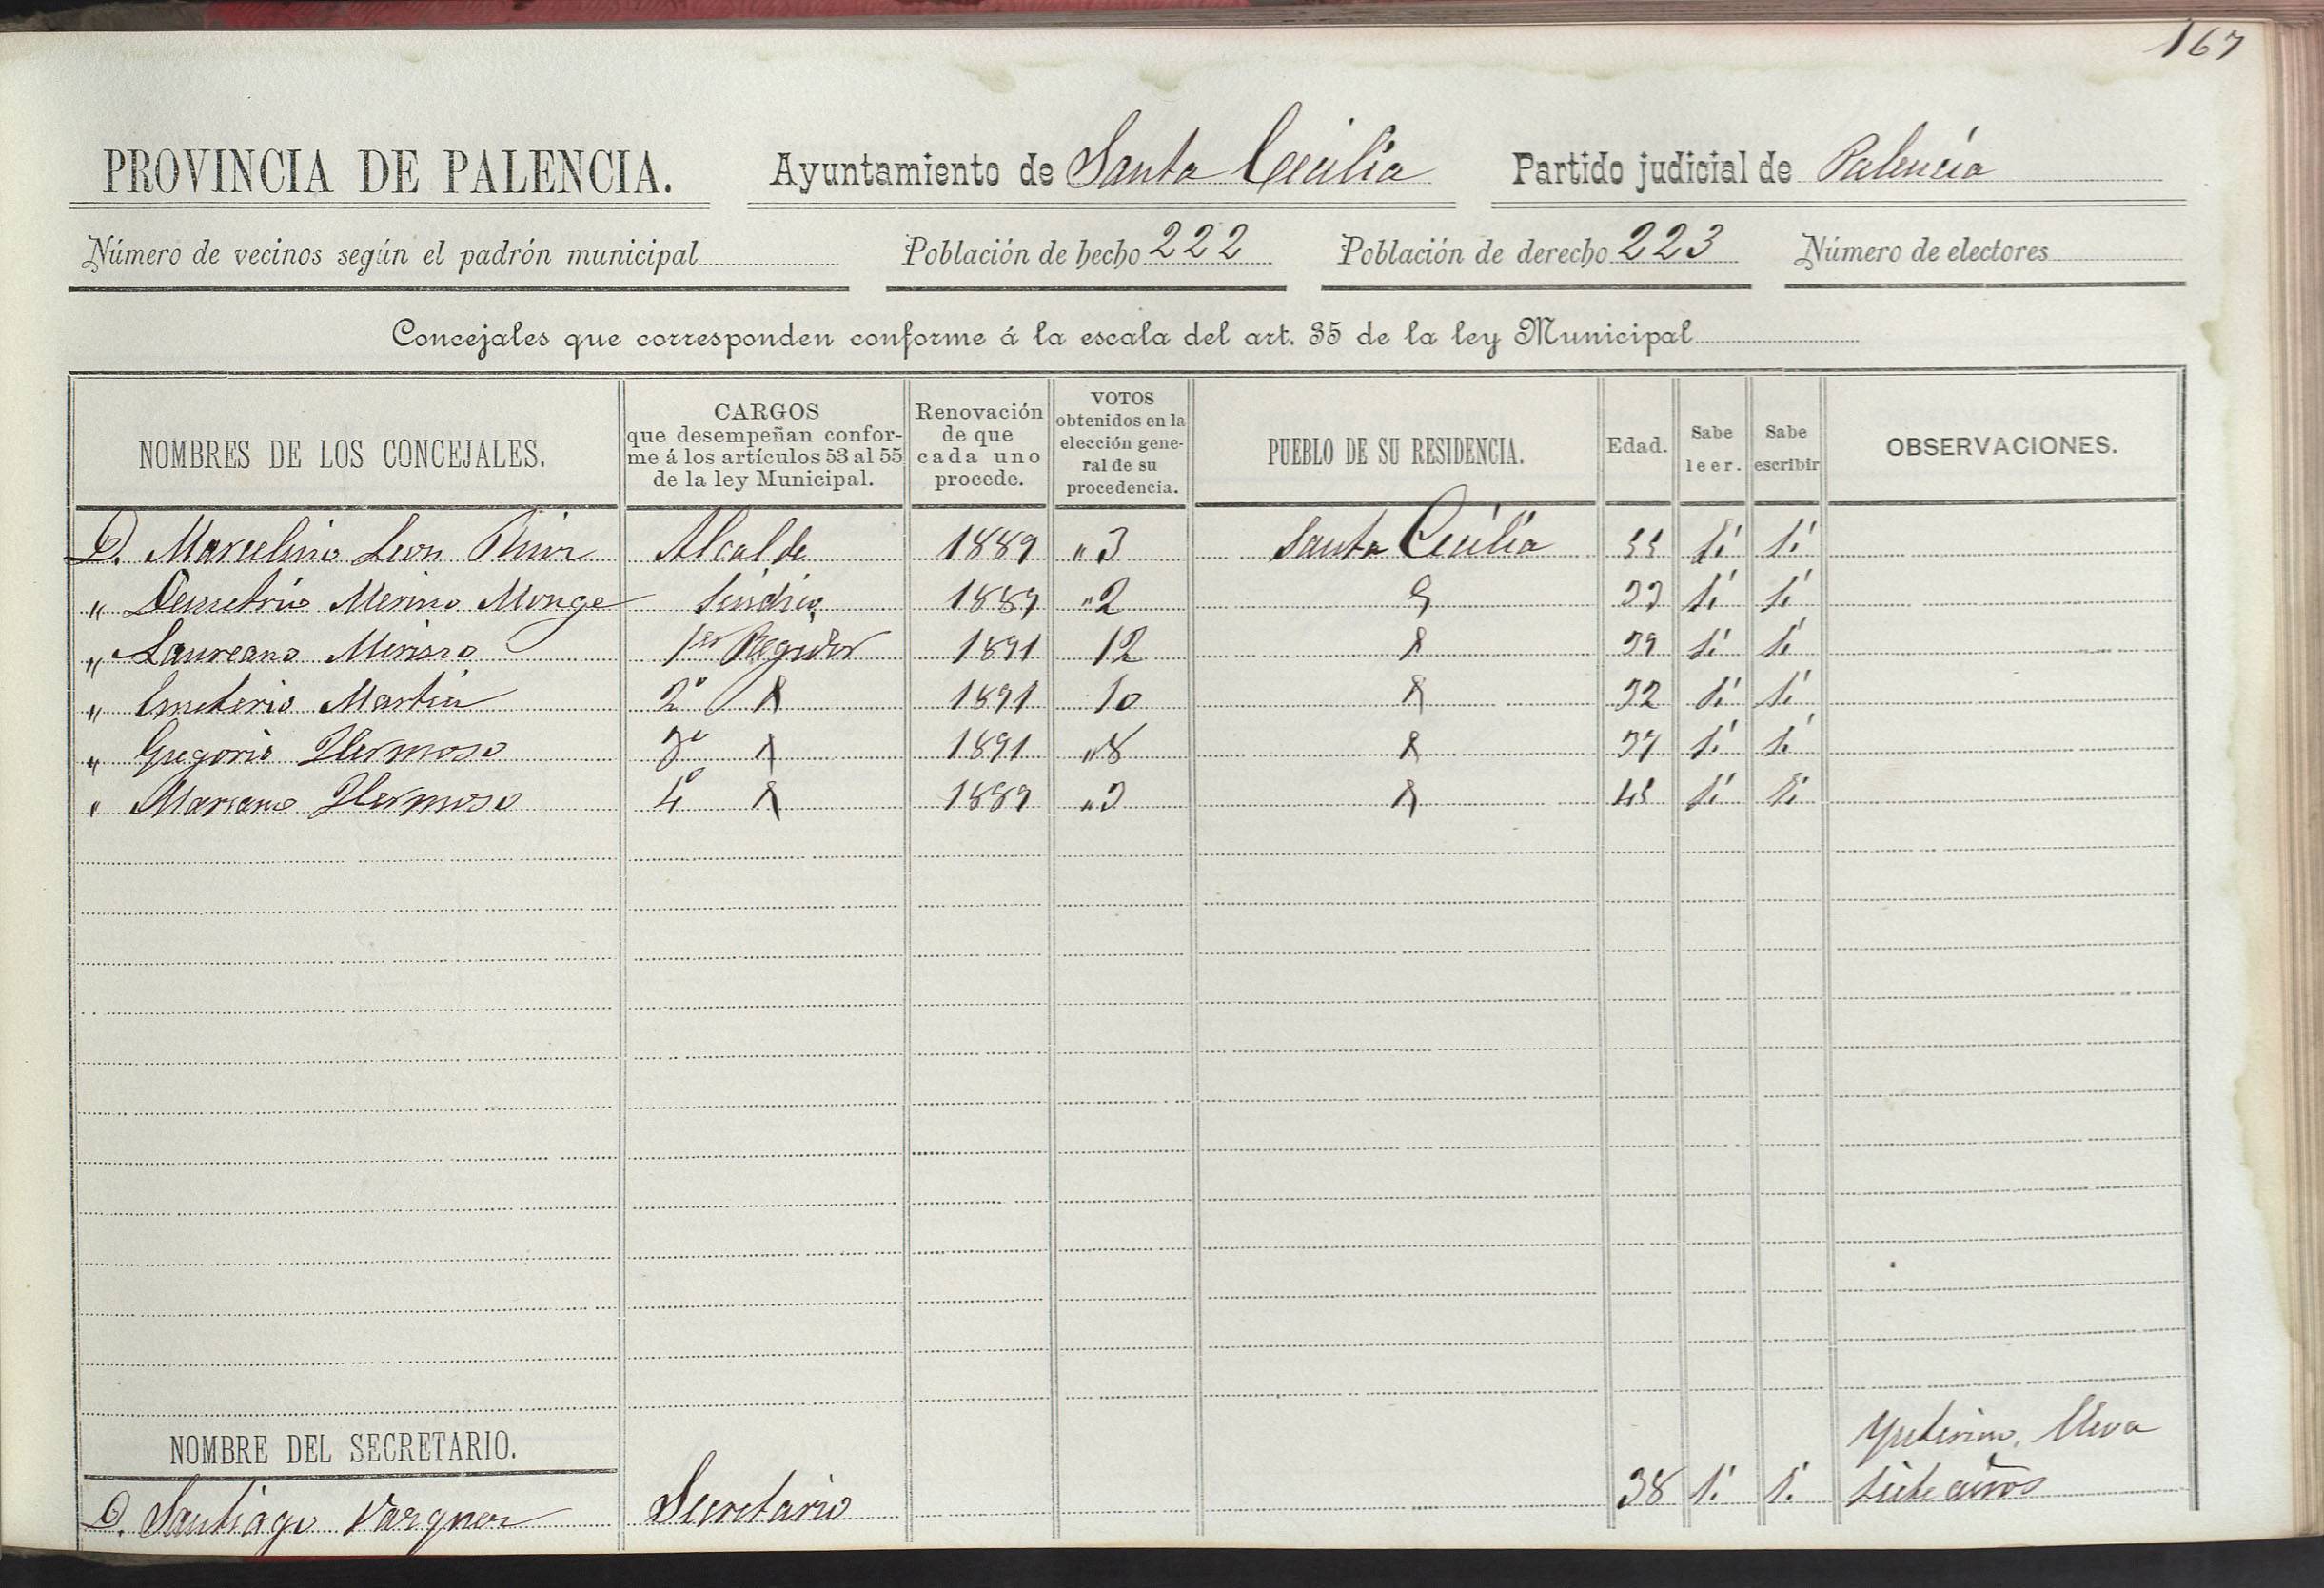 167
PROVINCIA DE PALENCIA. Ayuntamiento de Santa Cecilia Partido judicial de Palencia
Número de vecinos según el padrón municipal Población de hecho 222 Población de derecho 223 Número de electores
Concejales que corresponden conforme á la escala del art. 35 de la ley Municipal
NOMBRES DE LOS CONCEJALES.
CARGOS
que desempeñan confor-
me á los artículos 53 al 55
de la ley Municipal.
Renovación
de que
cada uno
procede.
VOTOS
obtenidos en la
elección gene-
ral de su
procedencia.
PUEBLO DE SU RESIDENCIA.
Edad.
Sabe
leer.
Sabe
escribir
OBSERVACIONES.
D. Marcelino Leon Alcalde 1889 " 3 Santa Cecilia 55 Sí Sí
" Demetrio Merino Monge Sindico 1889 " 2 33 Sí Sí
" Laureano Merino 1er Regidor 1891 12 39 Sí Sí
" Emeterio Martin 2º 1891 10 32 Sí Sí
" Gregorio Hermoso 3º 1891 " 8 37 Sí Sí
" Mariano Hermoso 4º 1889 " 3 45 Sí Sí
NOMBRE DEL SECRETARIO.
D. Santiago Vazquez Secretario 38 Sí Sí Ynterino, lleva
siete años